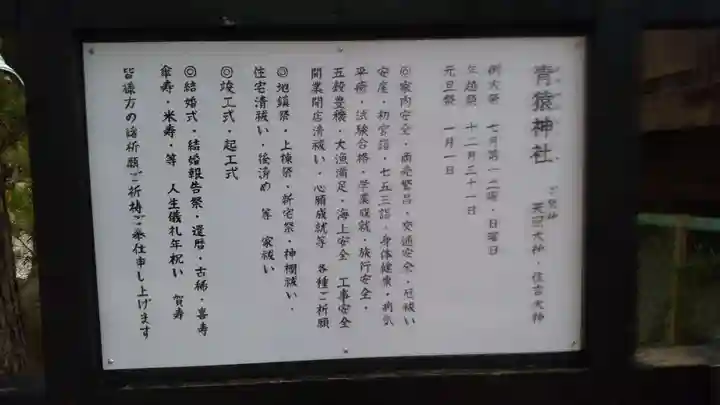 青猿神社
ご祭神 天照大神・住吉大神
例大祭 七月第一土曜・日曜日
年越祭 十二月三十一日
元旦祭 一月一日
◎家内安全・商売繁昌・交通安全・厄祓い
安産・初宮詣・七五三詣・身体健康・病気
平癒・試験合格・学業成就・旅行安全・
五穀豊穣・大漁満足・海上安全 工事安全
開業開店清祓い・心願成就等 各種ご祈願
◎地鎮祭・上棟祭・新宅祭・神棚祓い・
住宅清祓い・後清め 等 家祓い
◎竣工式・起工式
◎結婚式・結婚報告祭・還暦・古稀・喜寿
傘寿・米寿・等 人生儀礼年祝い 賀寿
皆様方の諸祈願ご祈祷ご奉仕申し上げます